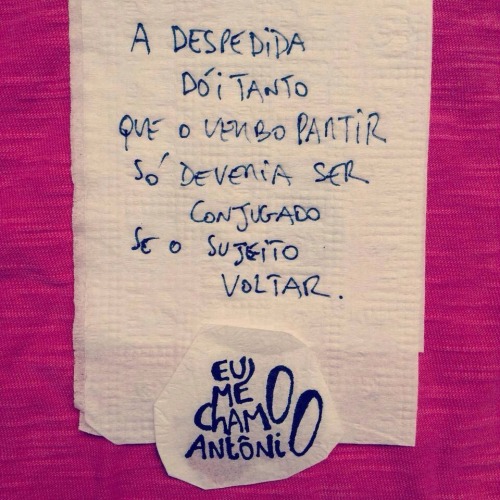 A DESPEDIDA
DÓI TANTO
QUE O VERBO PARTIR
SÓ DEVERIA SER
CONJUGADO
SE O SUJEITO
VOLTAR.
EU
ME
CHAMO
ANTÔNIO